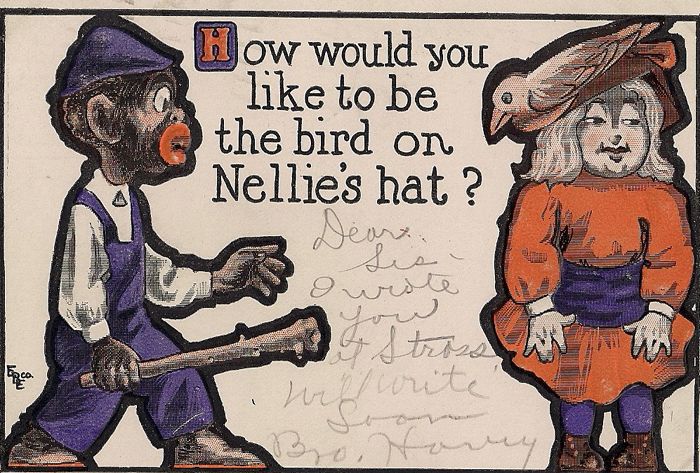 How would you
like to be
the bird on
Nellie's hat?
Dear
Sis -
I wrote
you
at Stross
will write
Soon
Bro. Harry